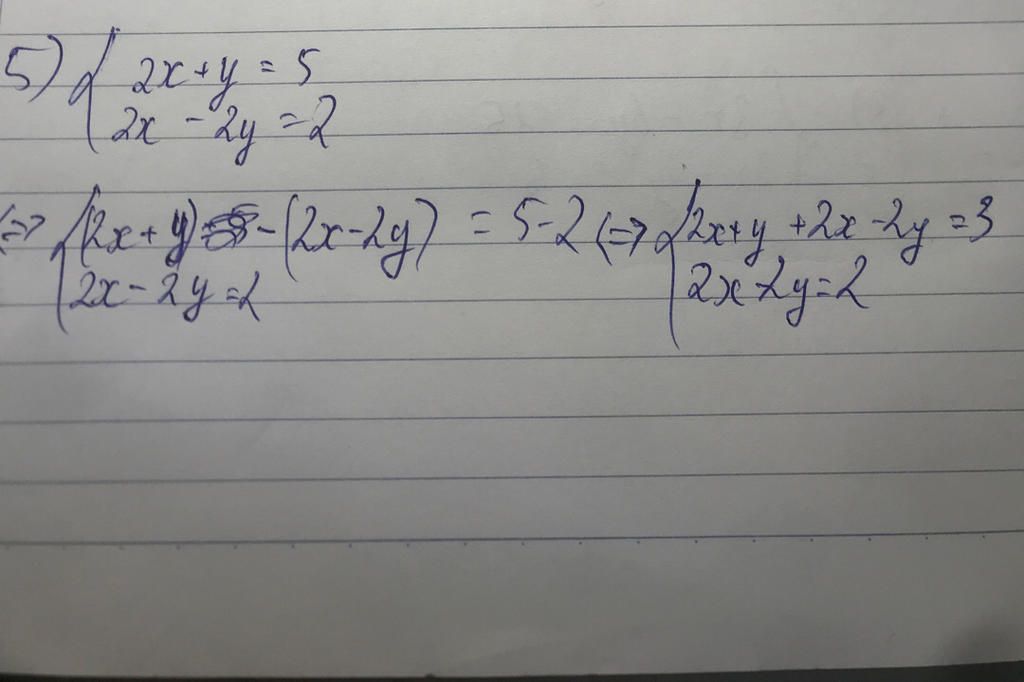 5) { 2x + y = 5
2x - 2y = 2
<=> { (2x + y) - (2x - 2y) = 5 - 2 <=> { 2x + y + 2x - 2y = 3
2x - 2y = 2 2x - 2y = 2